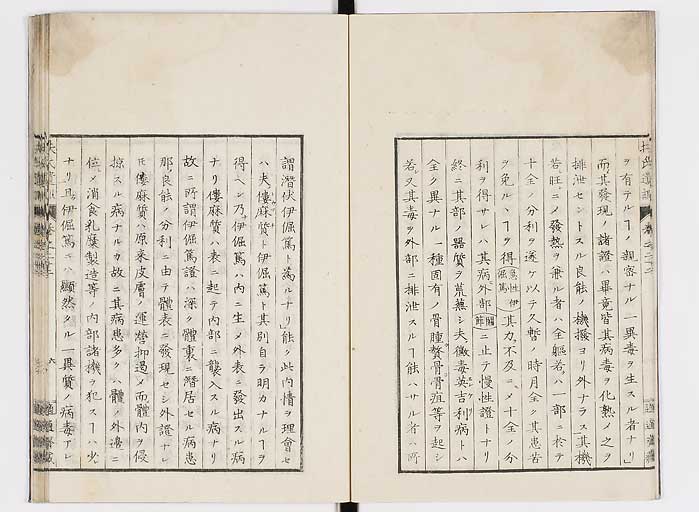 ヲ有テルヿノ親密ナル一異毒ヲ生スル者ナリ」
而〆其發現ノ諸證ハ畢竟皆其病毒ヲ化熟メ之ヲ
排泄セントスル良能ノ機撥ヨリ外ナラス」其機
若〆旺ニメ發熱ヲ兼ル者ハ全軀若〆ハ一部ニ於テ
十全ノ分利ヲ遂ケ以テ久暫ノ時月全ク其患苦
ヲ免ルヽヿヲ得急性伊倔篤其力〆不及ニメ十全ノ分
利ヲ得サレハ其病外部關節ニ止テ慢性證トナリ
終ニ其部ノ器質ヲ荒蕪シ夫〆黴毒英吉利病トハ
全ク異ナル一種固有ノ骨腫贅骨骨疽等ヲ起シ
若〆又其毒ヲ外部ニ排泄スルヿ能ハサル者ハ所
謂潛伏伊倔篤ト爲ルナリ」能ク此内情ヲ理會セ
ハ夫〆僂麻質ト伊倔篤ト其別自ラ明カナルヿヲ
得ヘシ乃〆伊倔篤ハ内ニ生メ外表ニ發出スル病
ナリ僂麻質ハ表ニ起テ内部ニ襲入スル病ナリ
故ニ所謂伊倔篤證ハ深ク體裏ニ潛居セル病患
那〆良能ノ分利ニ由テ體表ニ發現セシ外證ナレ
𪜈僂麻質ハ原來皮膚ノ運營抑遏メ而〆體内ヲ侵
掠スル病ナルカ故ニ其病患多クハ體ノ外邊ニ
位メ消食乳糜製造等ノ内部諸機ヲ犯スヿハ少
ナリ且〆伊倔篤ニハ顯然タル一異質ノ病毒アレ